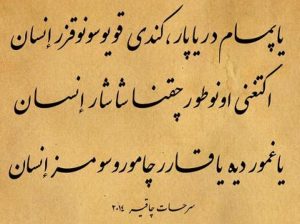 یاپمام در یاپار، کندی قویوسونو قزر إنسان
اکتغنی اونوطور چقنا شاشار إنسان
یاغمور دیه یاقارر چامورو سومز إنسان
سرحات چاقیر ٢٠١٤